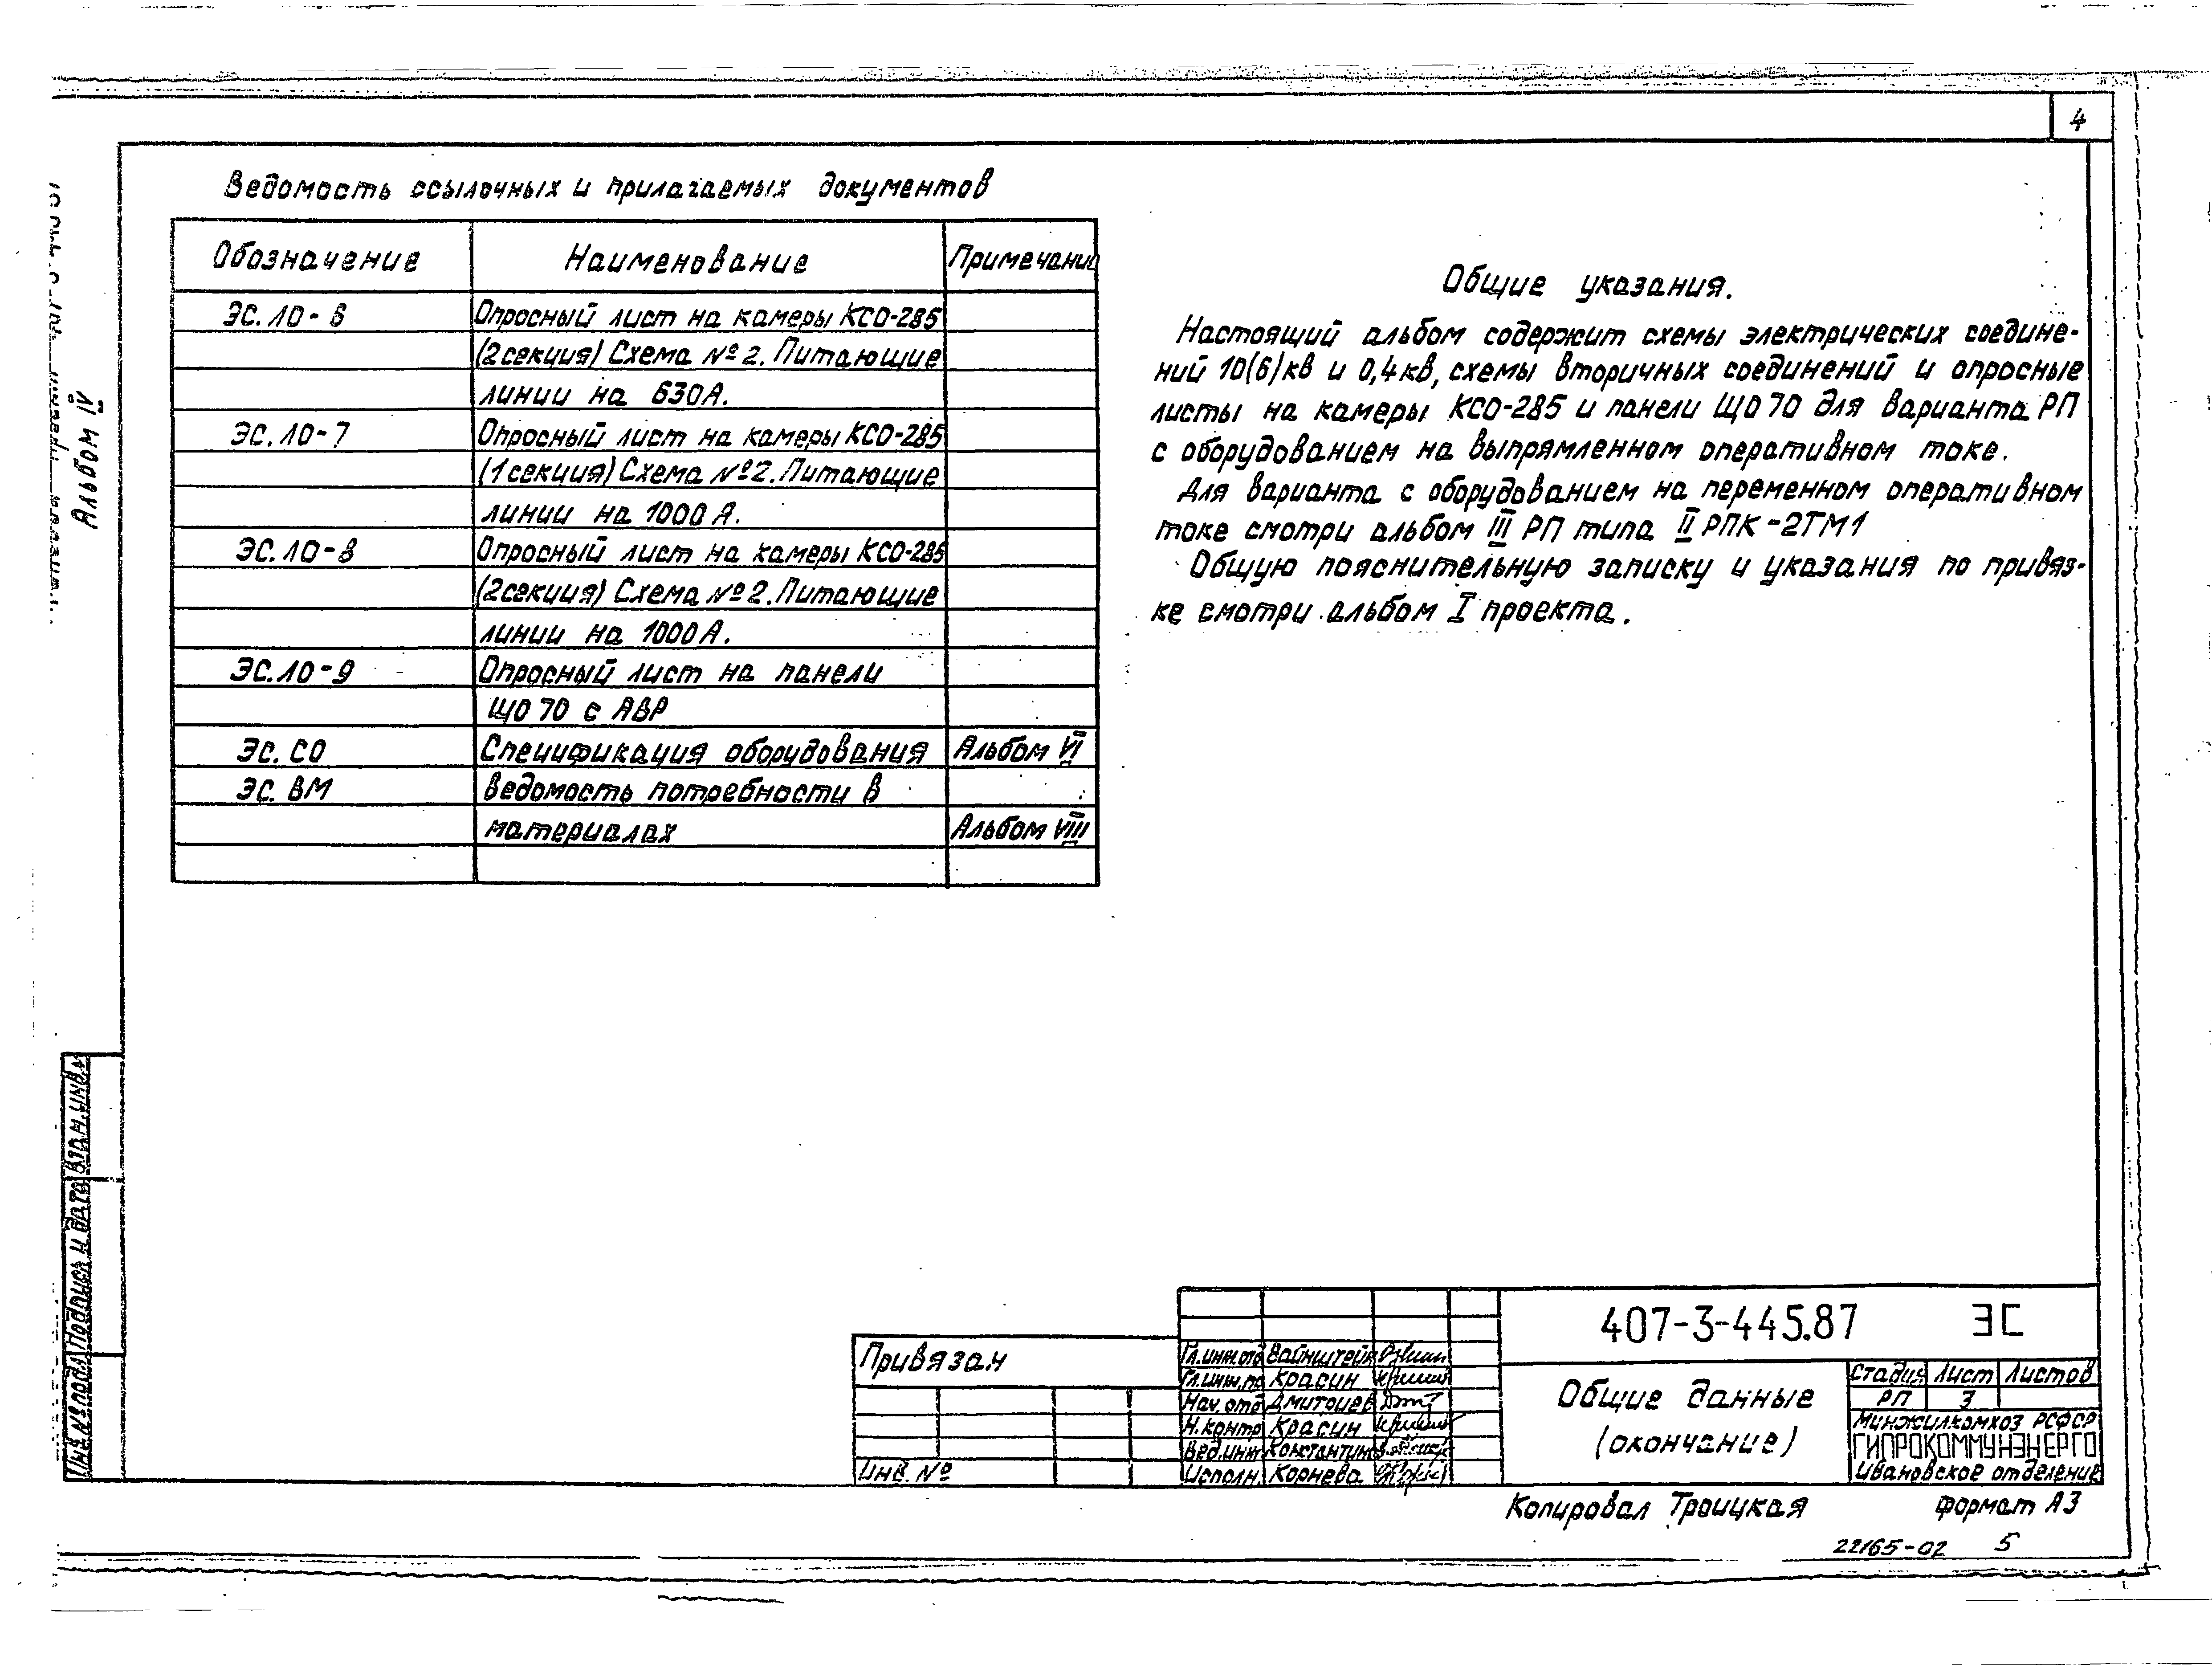 4
Альбом IV
Ведомость ссылочных и прилагаемых документов
Обозначение Наименование Примечание
ЭС.ЛО-6 Опросный лист на камеры КСО-285
(2секция) Схема №2. Питающие
линии на 630А.
ЭС.ЛО-7 Опросный лист на камеры КСО-285
(1секция) Схема №2. Питающие
линии на 1000А.
ЭС.ЛО-8 Опросный лист на камеры КСО-285
(2секция) Схема №2. Питающие
линии на 1000А.
ЭС.ЛО-9 Опросный лист на панели
ЩО70 с АВР
ЭС. СО Спецификация оборудования Альбом VI
ЭС. ВМ Ведомость потребности в
материалах Альбом VIII
Общие указания.
Настоящий альбом содержит схемы электрических соедине-
ний 10(6)кв и 0,4кв, схемы вторичных соединений и опросные
листы на камеры КСО-285 и панели ЩО70 для варианта РП
с оборудованием на выпрямленном оперативном токе.
Для варианта с оборудованием на переменном оперативном
токе смотри альбом III РП типа II РПК-2ТМ1
Общую пояснительную записку и указания по привяз-
ке смотри альбом I проекта.
Инв.№подл. Подпись и дата Взам.инв.№
Привязан
Инв. №
Гл.инж.отд Вайнштейн
Гл.инж.пр Красин
Нач.отд Дмитриев
Н.контр Красин
Вед.инж Константинов
Исполн. Корнева
407-3-445.87 ЭС
Общие данные
(окончание)
Стадия Лист Листов
РП 3
Минжилкомхоз РСФСР
ГИПРОКОММУНЭНЕРГО
Ивановское отделение
Копировал Троицкая Формат А3
22165-02 5